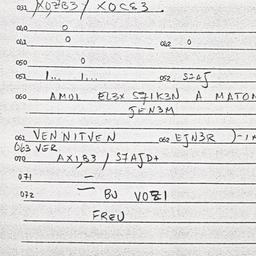 031 X0ZB3 / XOC83
040 0
041 0 042 0
050 0
051 1... 1... 052 S7AJ
060 AMOL EL3X S71K3N A MATOM
JEN3M
061 VEN NITVEN 062 EJN3R
063 VER
070 AX1,B3 / S7AJD+
071 =
072 BU VOZ1
FREU